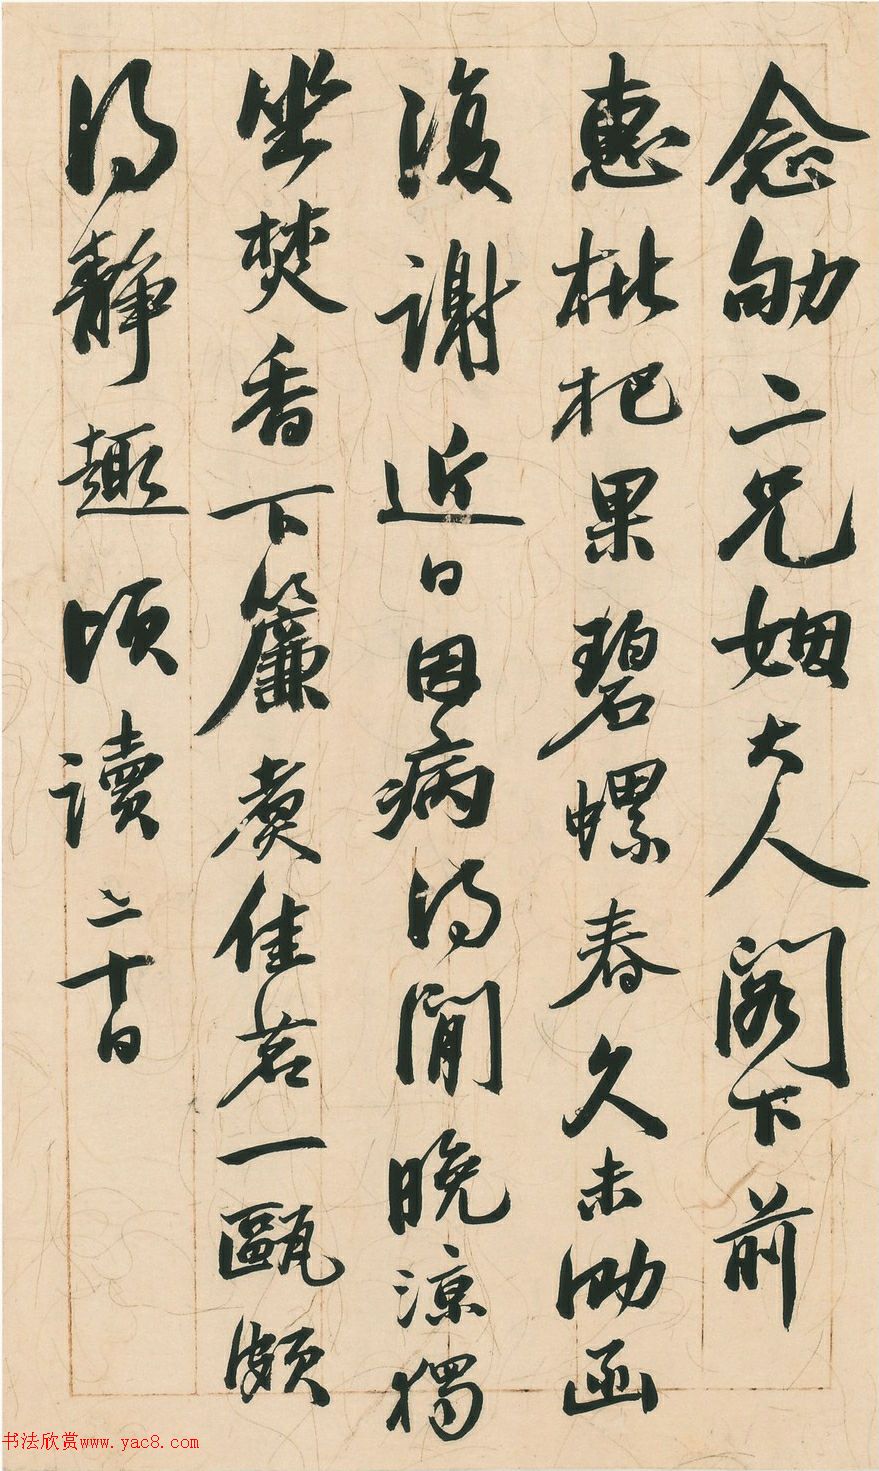 念劬二兄姻大人閣下前
惠枇杷果碧螺春久未㘦函
復謝近日因病得閒晚涼獨
坐焚香下簾煑佳茗一甌頗
得靜趣頃讀二十日
书法欣赏www.yac8.com